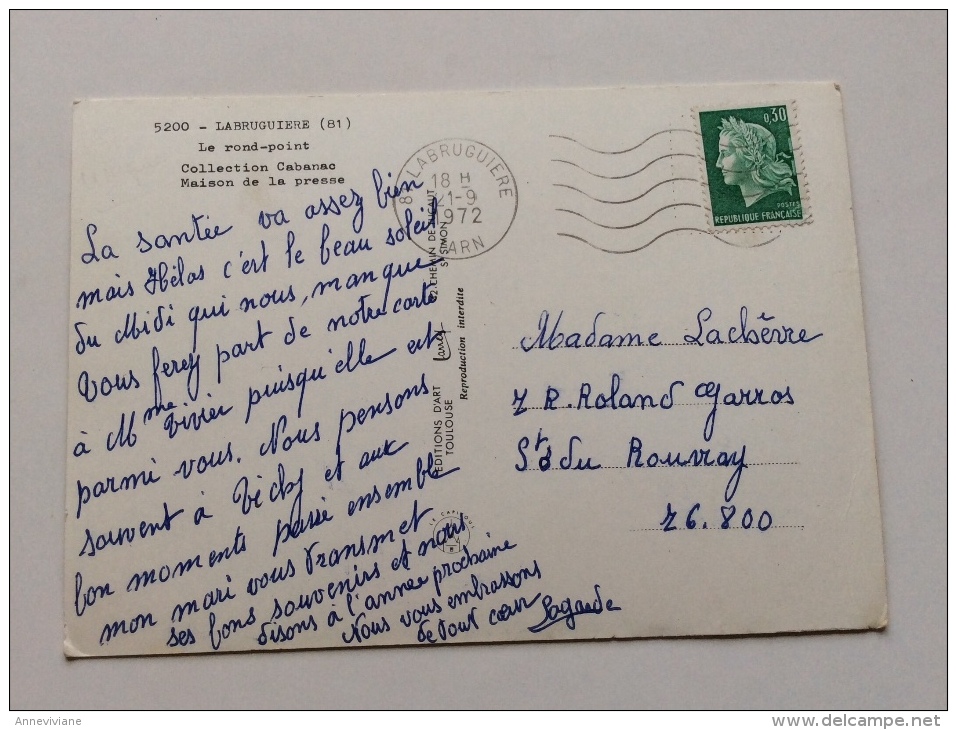 5200 - LABRUGUIERE (81)
Le rond-point
Collection Cabanac
Maison de la presse
La santée va assez bien
mais Hélas c'est le beau soleil
du Midi qui nous, manque
Vous ferez part de notre carte
à Mme. Vivier puisqu'elle est
parmi vous. Nous pensons
souvent à Vichy et aux
bon moments passé ensemble
mon mari vous transmet
ses bons souvenirs et nous
disons à l'année prochaine
Nous vous embrassons
de tout cœur Lagarde
81 LABRUGUIERE
18 H
21-9
1972
TARN
0,30
POSTES
REPUBLIQUE FRANÇAISE
62 CHEMIN DE
ST SIMON
EDITIONS D'ART
TOULOUSE
larrey
Reproduction interdite
Madame Lachêvre
7 R. Roland Garros
St du Rouvray
76.800
Anneviviane
delcampe.net